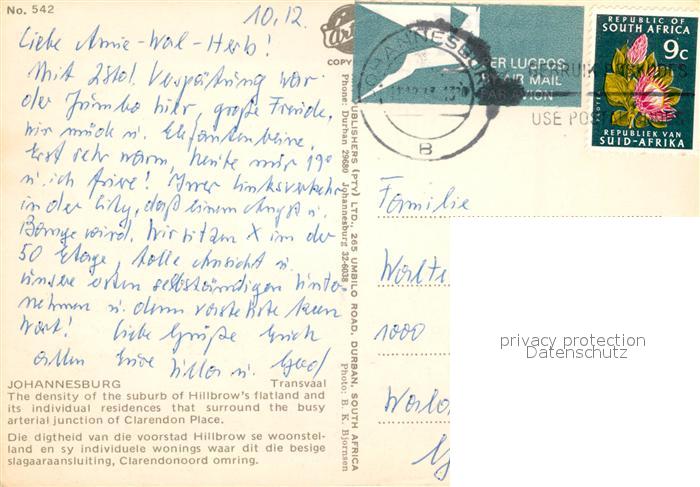 No. 542
10.12.
Liebe Annie-Wal-Herb!
Mit 2 Std. Verspätung war
der Jumbo hier, große Freude,
wir müde u. Elefantenbeine.
Erst sehr warm, heute nur 19°
u. ich friere! Linksverkehr
in der City, daß einem Angst u.
Bange wird. Wir sitzen X im der
50 Etage, tolle Ansicht u.
unsere ersten selbständigen Unter-
nehmen u. dann
Liebe Grüße Euch
allen Eure u.
JOHANNESBURG Transvaal
The density of the suburb of Hillbrow's flatland and
its individual residences that surround the busy
arterial junction of Clarendon Place.
Die digtheid van die voorstad Hillbrow se woonstel-
land en sy individuele wonings waar dit die besige
slagaaraansluiting, Clarendonoord omring.
COPY
PUBLISHERS (PTY) LTD., 265 UMBILO ROAD, DURBAN, SOUTH AFRICA
Phone: Durban 29680 Johannesburg 32-6038 Photo: B. K. Bjornsen
PER LUGPOS
BY AIR MAIL
PAR AVION
JOHANNESBURG
B
USE POSTAL CODES
REPUBLIC OF
SOUTH AFRICA
9c
PROTEA
REPUBLIEK VAN
SUID-AFRIKA
Familie
1000
privacy protection
Datenschutz